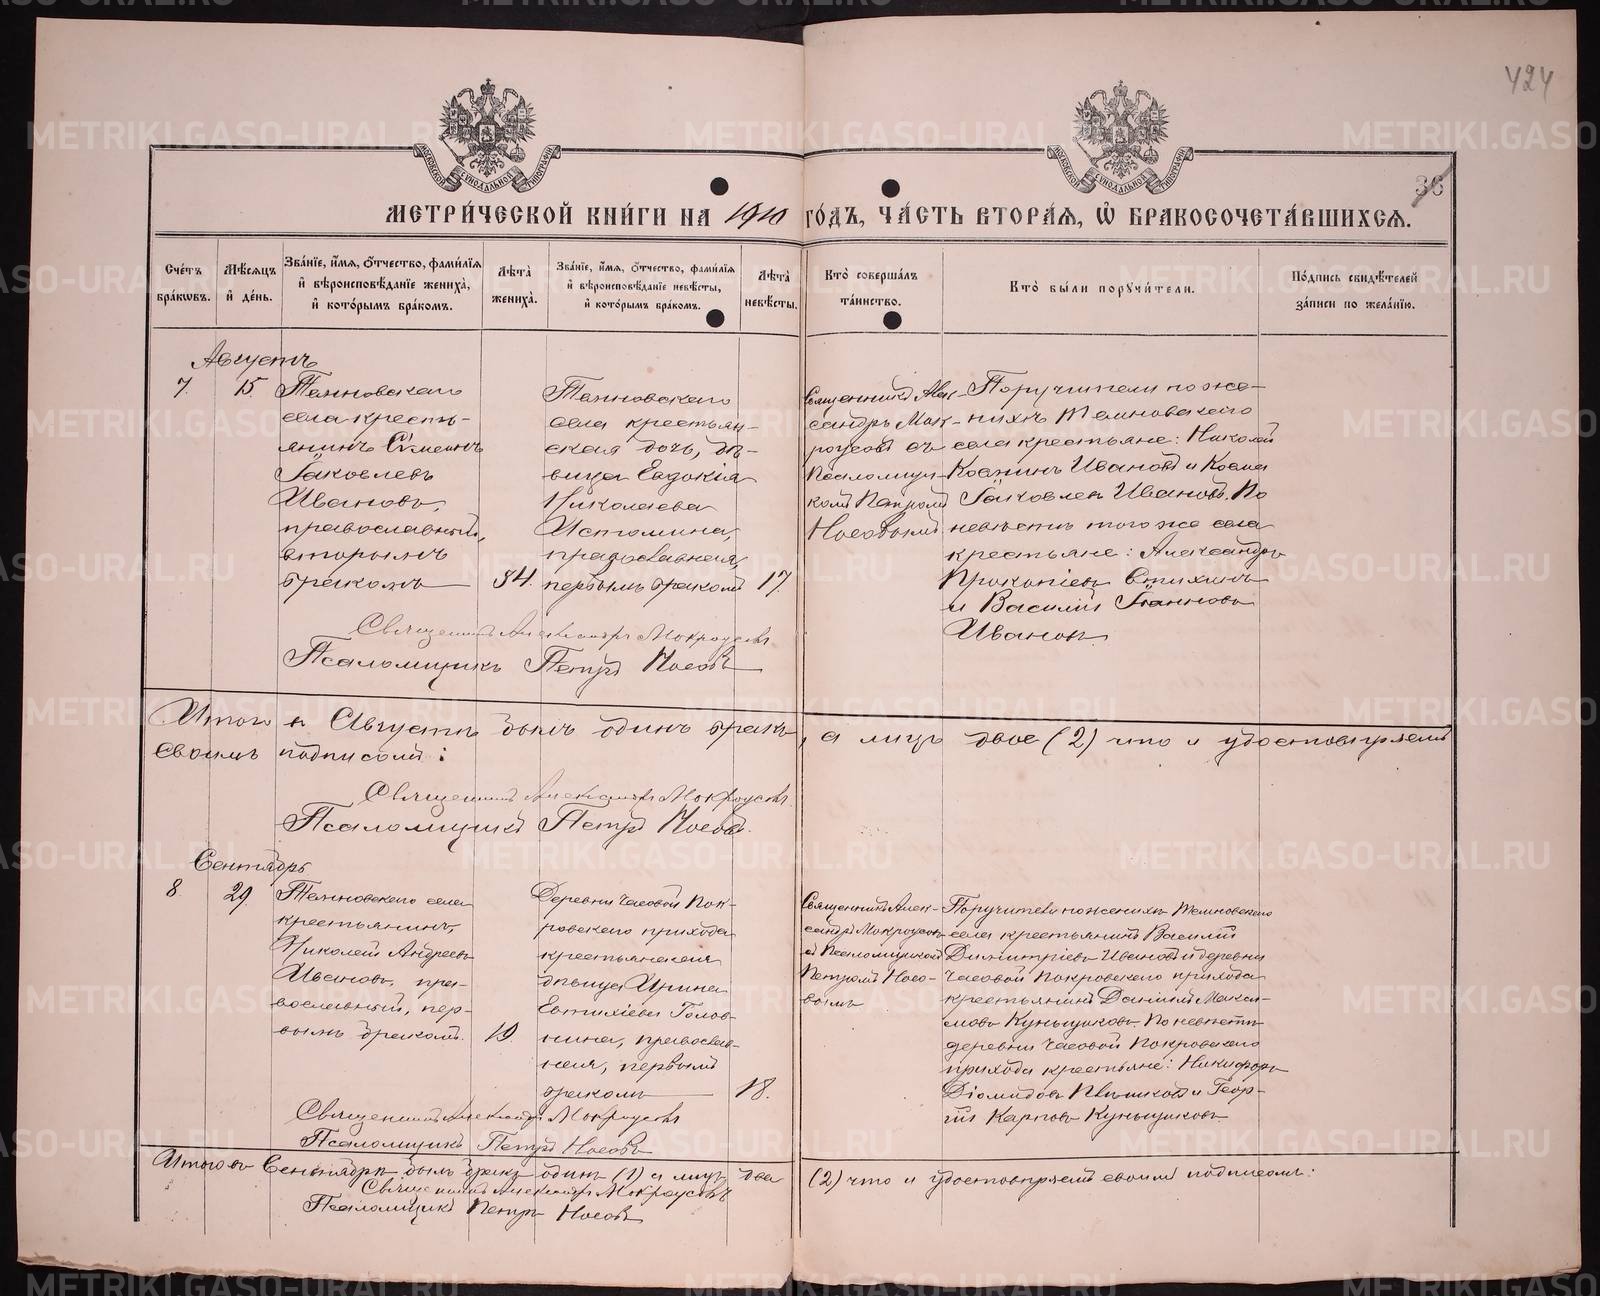 424
36
МОСКОВСКОЙ СѴНОДАЛЬНОЙ ТИПОГРАФІИ
МОСКОВСКОЙ СѴНОДАЛЬНОЙ ТИПОГРАФІИ
МЕТРИ́ЧЕСКОЙ КНИ́ГИ НА 1910 ГО́ДЪ, ЧА́СТЬ ВТОРА́Я, Ѡ҆ БРАКОСОЧЕТА́ВШИХСЯ.
Сче́тъ бра́кѡвъ.
Мѣ́сяцъ и҆ де́нь.
Зва́нїе, и҆́мя, ѻ҆́тчество, фами́лїя и҆ вѣроисповѣ́данїе жениха̀, и҆ кото́рымъ бра́комъ.
Лѣ́та̀ жениха̀.
Зва́нїе, и҆́мя, ѻ҆́тчество, фами́лїя и҆ вѣроисповѣ́данїе невѣ́сты, и҆ кото́рымъ бра́комъ.
Лѣ́та̀ невѣ́сты.
Кто̀ соверша́лъ та́инство.
Кто̀ бы́ли порꙋчи́тели.
По́дпись свидѣ́телей за́писи по жела́нїю.
Августъ
7.
15.
Темновскаго
села кресть-
янинъ Сѵмеонъ
Іаковлевъ
Ивановъ,
православный,
вторымъ
бракомъ
34.
Темновскаго
села крестьян-
ская дочь, дѣ-
вица Евдокія
Николаева
Истомина,
православная,
первымъ бракомъ
17.
Священникъ Алек-
сандръ Мок-
роусовъ съ
Псаломщи-
комъ Петромъ
Носовымъ
Поручители по же-
нихѣ Темновскаго
села крестьяне: Николай
Козминъ Ивановъ и Косма
Іаковлевъ Ивановъ. По
невѣстѣ того же села
крестьяне: Александръ
Прокопіевъ Стихинъ
и Василій Іоанновъ
Ивановъ.
Священникъ Александръ Мокроусовъ
Псаломщикъ Петръ Носовъ
Итого въ Августѣ былъ одинъ бракъ, а лицъ двое (2) что и удостовѣряемъ
своимъ подписомъ:
Священникъ Александръ Мокроусовъ.
Псаломщикъ Петръ Носовъ.
Сентябрь
8
29.
Темновскаго села
крестьянинъ,
Николай Андреевъ
Ивановъ, пра-
вославный, пер-
вымъ бракомъ.
19.
Деревни Часовой Пок-
ровскаго прихода
крестьянская
дѣвица Ирина
Евтихіева Голов-
нина, православ-
ная, первымъ
бракомъ
18.
Священникъ Алек-
сандръ Мокроусовъ
съ Псаломщикомъ
Петромъ Носо-
вымъ
Поручители по женихѣ Темновскаго
села крестьянинъ Василій
Димитріевъ Ивановъ и деревни
Часовой Покровскаго прихода
крестьянинъ Даніилъ Макси-
мовъ Куньщиковъ. По невѣстѣ
деревни Часовой Покровскаго
прихода крестьяне: Никифоръ
Діомидовъ и Геор-
гій Карповъ Куньщиковъ.
Священникъ Александръ Мокроусовъ
Псаломщикъ Петръ Носовъ
Итого въ Сентябрѣ былъ бракъ одинъ (1) а лицъ два (2) что и удостовѣряемъ своимъ подписомъ:
Священникъ Александръ Мокроусовъ
Псаломщикъ Петръ Носовъ
METRIKI.GASO-URAL.RU